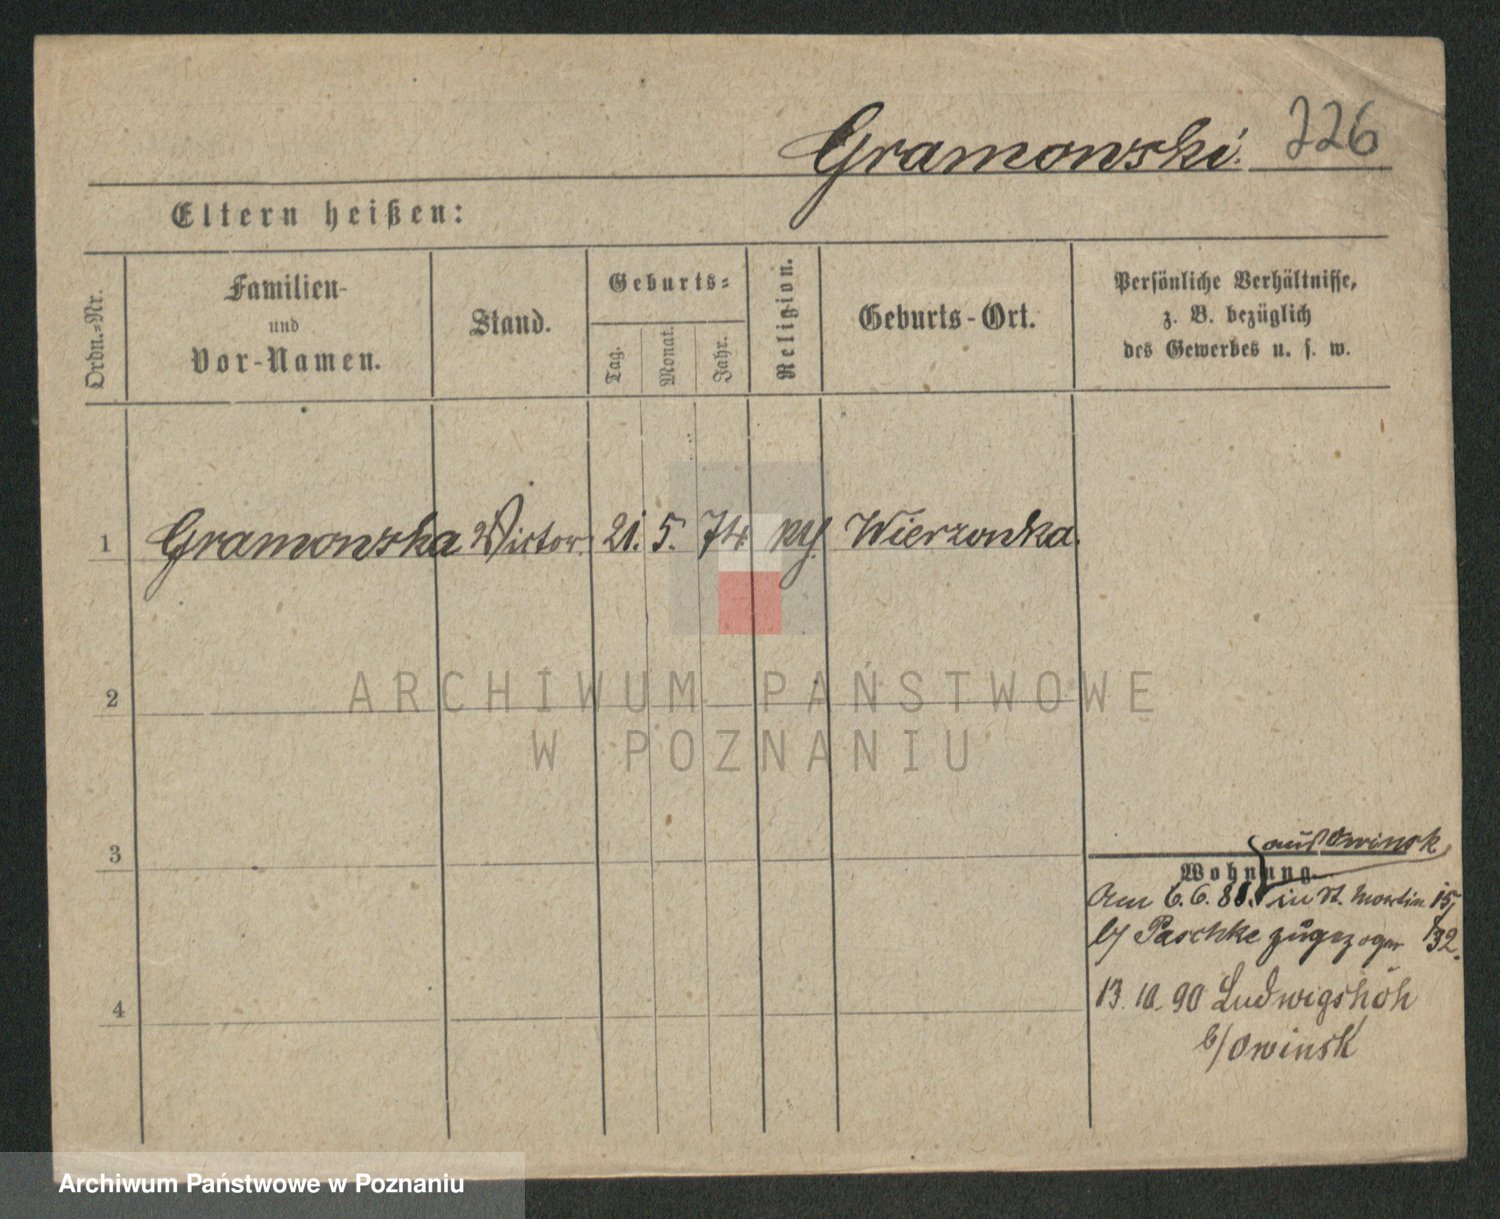 Gramowski. 226
Eltern heißen:
Ordn.-Nr.
Familien-
und
Vor-Namen.
Stand.
Geburts-
Tag.
Monat.
Jahr.
Religion.
Geburts-Ort.
Persönliche Verhältnisse,
z. B. bezüglich
des Gewerbes u. s. w.
1 Gramowska Victor. 21. 5. 74 Wierzonka.
2
ARCHIWUM PAŃSTWOWE
W POZNANIU
3
aus Owinsk
Wohnung
Am 6.6. in St. Martin 15,
b/ Paschke zugezogen 132.
4
13. 10. 90 Ludwigshöh
b/ Owinsk
Archiwum Państwowe w Poznaniu